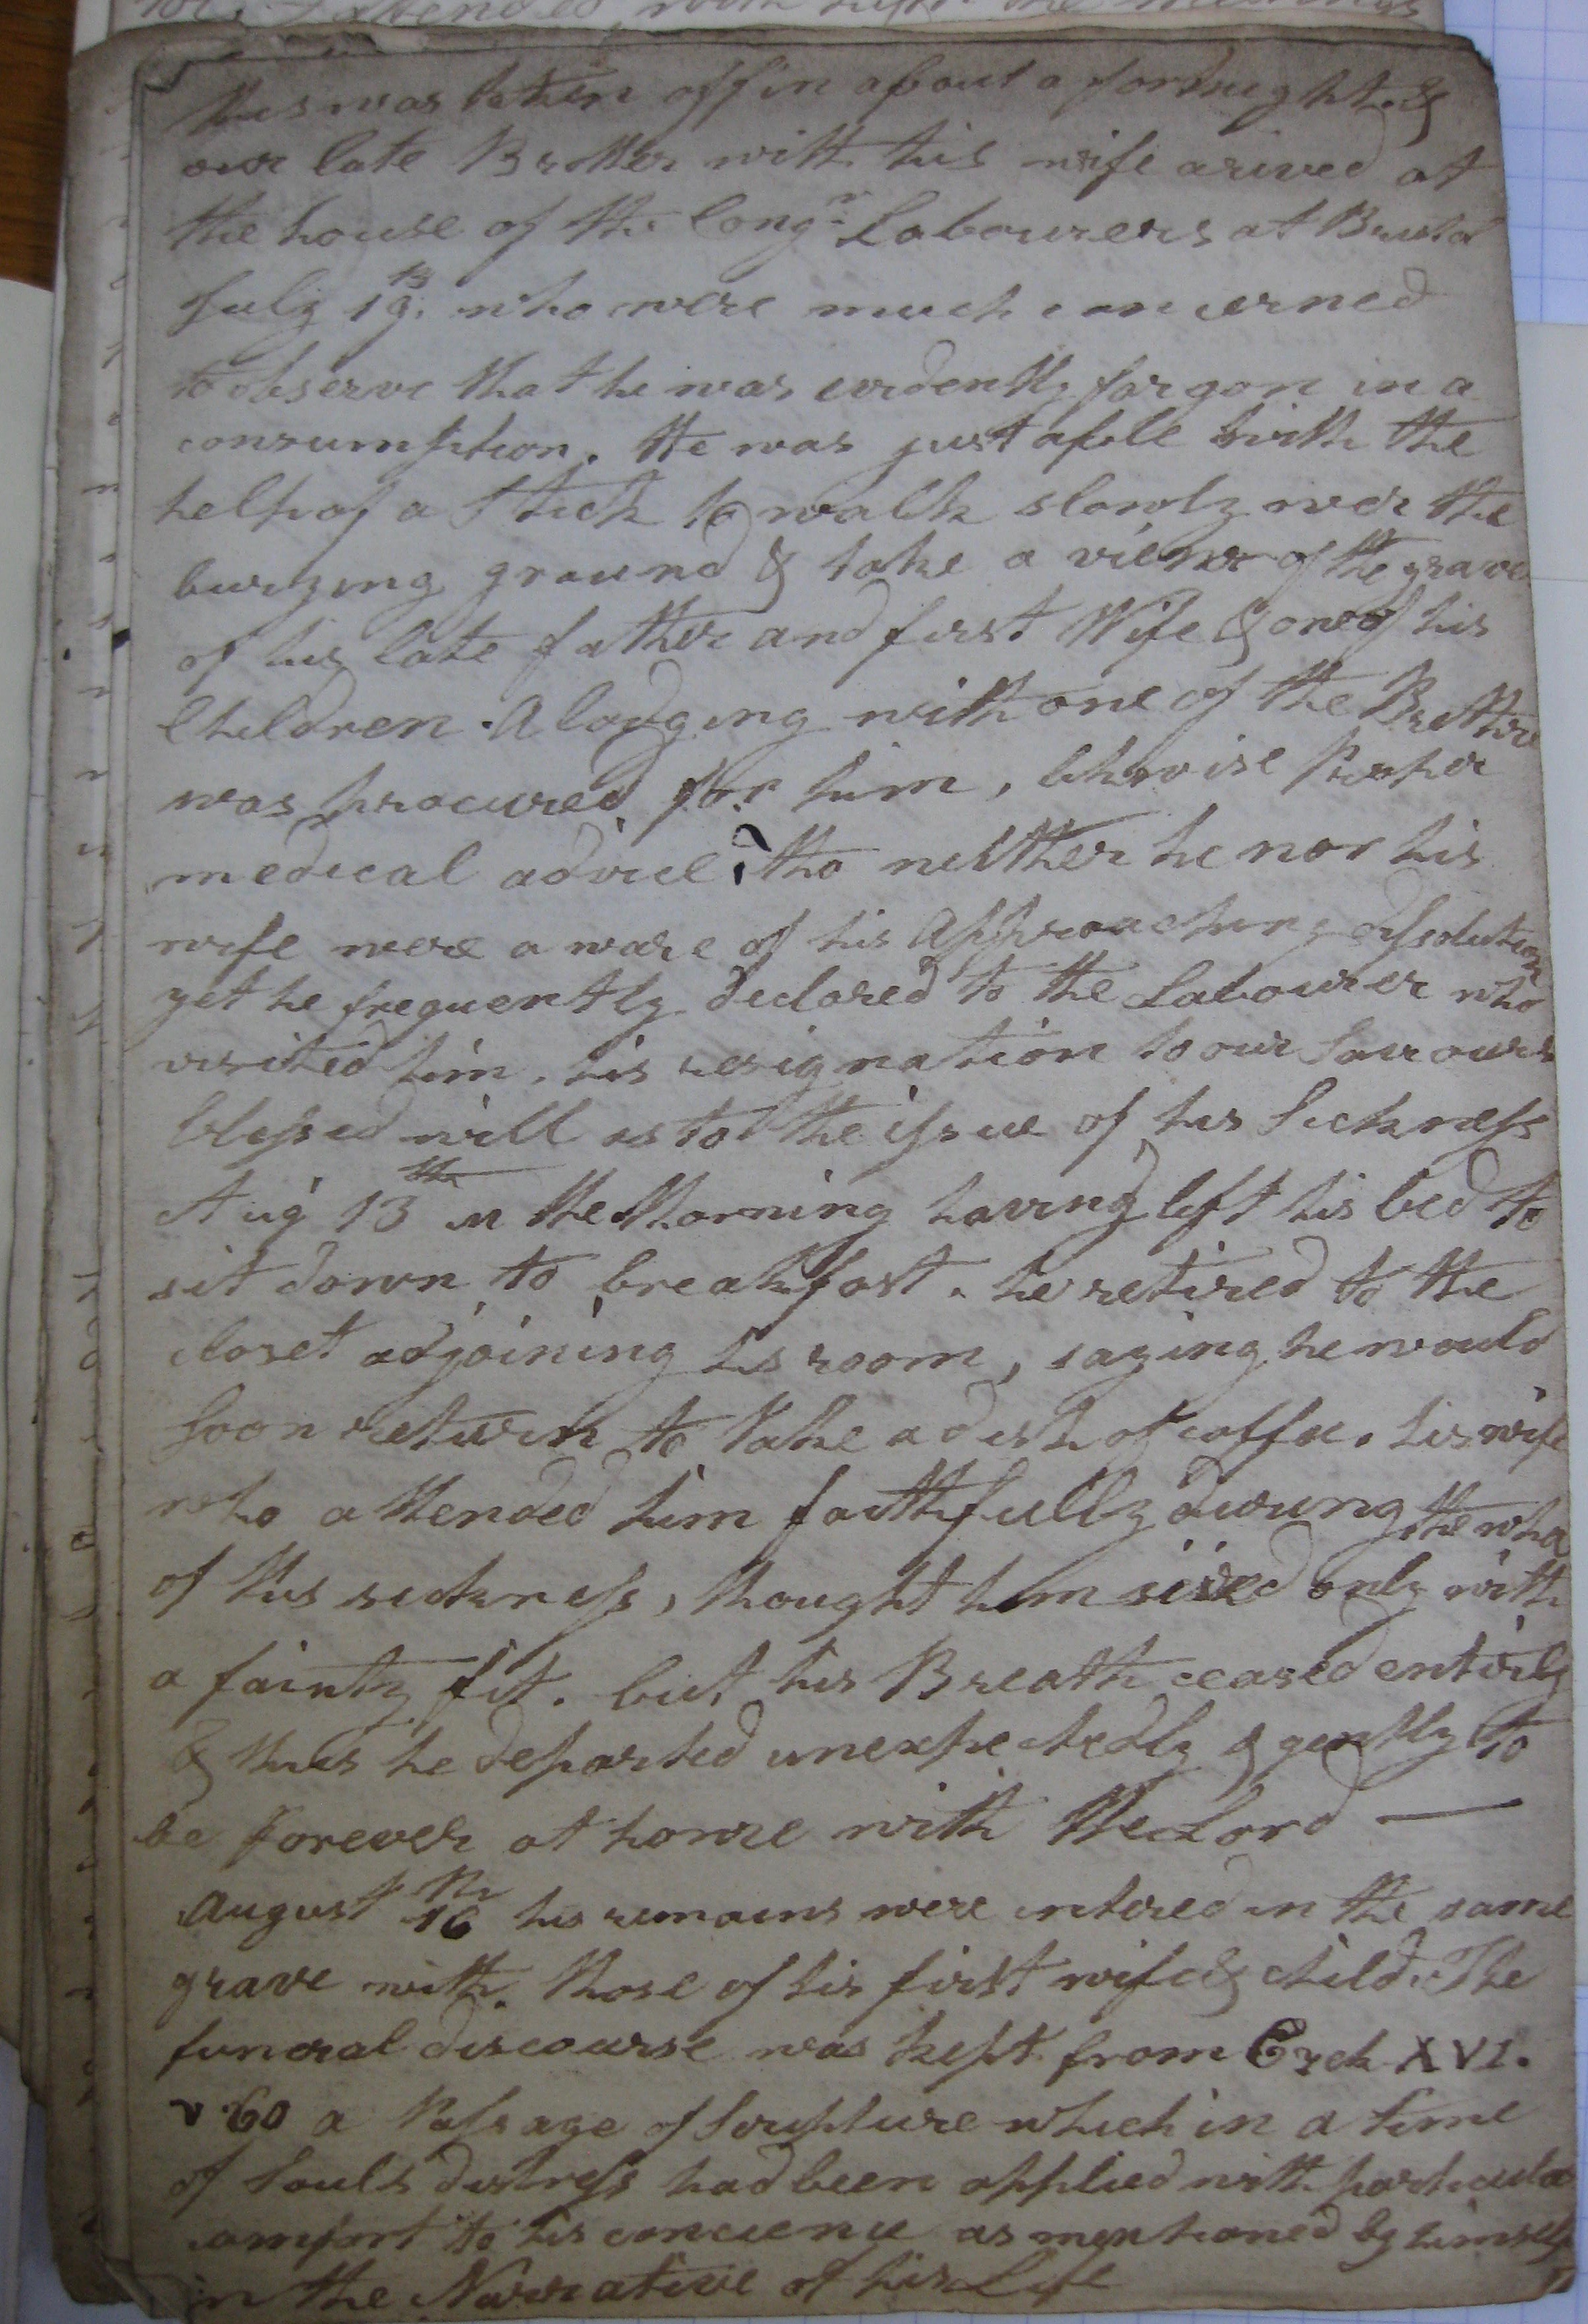 this was taken off in about a fortnight. &
our late Brother with his wife arived at
the house of the Congn. Labourers at Bristol
July 19. who were much concerned
to observe that he was evidently far gon in a
consumption. He was just able with the
help of a Stick to walk slowly over the
burying ground & take a view of the grave
of his late father and first Wife & one of his
Children. A lodging with one of the Brethre
was procured for him, likewise Proper
medical advice, tho neither he nor his
wife were aware of his Approaching dissolution
yet he frequently declared to the Labourer who
visited him, his resignation to our Saviours
blessed will as to the issue of his Sickness
Aug 13th in the Morning having left his bed to
sit down to breakfast. he retired to the
closet adjoining his room, saying he would
soon return to take a dish of coffee. his wife
who attended him faithfully during the whol
of his sickness, thought him siezed only with
a fainty fit. but his Breath ceased entirely
& thus he departed unexpectedly & gently to
be forever at home with the Lord —
August 16th his remains were intered in the same
grave with those of his first wife & child. The
funeral discourse was kept from Ezek XVI.
v 60 a Passage of Scripture which in a time
of Souls distress had been applied with particular
comfort to his concience as mentioned by himself
in the Narrative of his Life